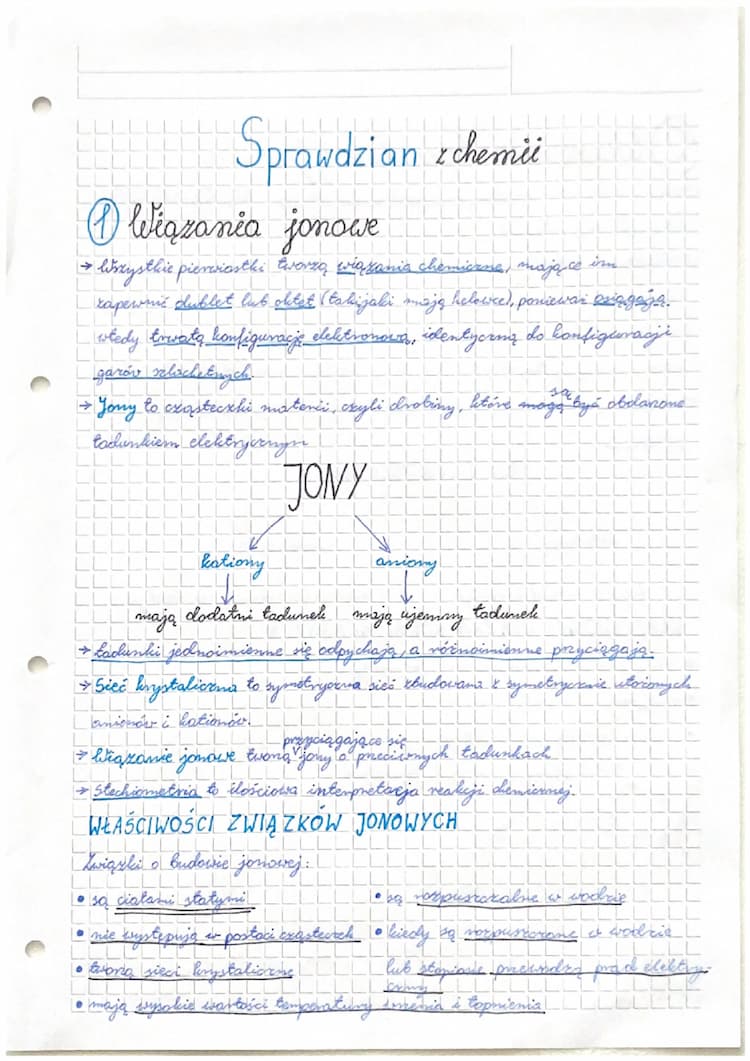 Sprawdzian z chemii
1 Wiązania jonowe
→ Wszystkie pierwiastki tworzą wiązania chemiczne, mające im
zapewnić dublet lub oktet (taki jaki mają helowce), ponieważ osiągają
wtedy trwałą konfigurację elektronową, identyczną do konfiguracji
gazów szlachetnych.
→ Jony to cząsteczki materii, czyli drobiny, które są obdarzone
ładunkiem elektrycznym
JONY
kationy aniony
mają dodatni ładunek mają ujemny ładunek
→ Ładunki jednoimienne się odpychają, a różnoimienne przyciągają.
→ Sieć krystaliczna to symetryczna sieć zbudowana z symetrycznie ułożonych
anionów i kationów.
→ Wiązanie jonowe tworzą przyciągające się jony o przeciwnych ładunkach
→ Stechiometria to ilościowa interpretacja reakcji chemicznej.
WŁAŚCIWOŚCI ZWIĄZKÓW JONOWYCH
Związki o budowie jonowej:
• są ciałami stałymi • są rozpuszczalne w wodzie
• nie występują w postaci cząsteczek • kiedy są rozpuszczone w wodzie
• tworzą sieci krystaliczne lub stopione, przewodzą prąd elektry-
czny
• mają wysokie wartości temperatury wrzenia i topnienia